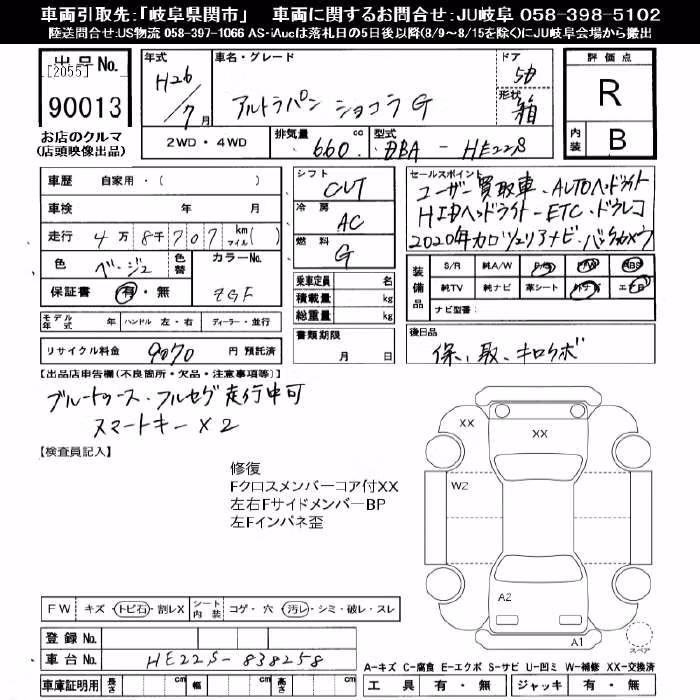 車両引取先:「岐阜県関市」 車両に関するお問合せ:JU岐阜 058-398-5102
陸送問合せ:US物流 058-397-1066 AS-iAucは落札日の5日後以降(8/9~8/15を除く)にJU岐阜会場から搬出
出品No.
[2055]
90013
お店のクルマ
(店頭映像出品)
年式
H26/7月
車名・グレード
アルトラパン ショコラG
ドア
5D
形状
箱
2WD・4WD
排気量
660 cc
型式
DBA-HE22S
評価点
R
内装
B
車歴 自家用・( )
車検 年 月
走行 4万8千707 km マイル( )
色 ベージュ 色替 カラーNo.
保証書 有・無 ZGF
モデル年式 年 ハンドル 左・右 ディーラー・並行
リサイクル料金 9070 円 預託済
シフト
CVT
冷房
AC
燃料
G
乗車定員 名
積載量 kg
総重量 kg
書類期限
月 日
セールスポイント
ユーザー買取車・AUTOヘッドライト
HIDヘッドライト-ETC・ドラレコ
2020年カロッツェリアナビ・バックカメラ
装備品
S/R 純A/W P/S P/W ABS
純TV 純ナビ 革シート エアB
ナビ型番:
後日品
保、取、キロクボ
【出品店申告欄(不良箇所・欠品・注意事項等)】
ブルートゥース・フルセグ走行中可
スマートキー×2
【検査員記入】
修復
Fクロスメンバーコア付XX
左右FサイドメンバーBP
左Fインパネ歪
XX
XX
W2
A2
A1
スペア
FW キズ・トビ石・割レX シート内装 コゲ・穴・汚レ・シミ・破レ・スレ
登録No.
車台No. HE22S-838258
車庫証明用 長さ cm 幅 cm 高さ cm
A-キズ C-腐食 E-エクボ S-サビ U-凹ミ W-補修 XX-交換済
工具 有・無 ジャッキ 有・無